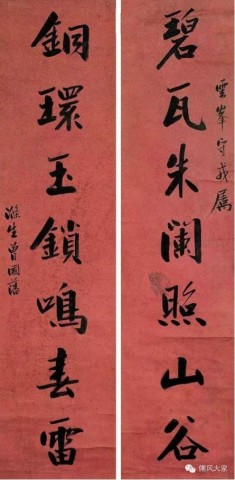 碧瓦朱闌照山谷
雲峯守戎屬
銅環玉鎖鳴春雷
滌生曾國藩
儒风大家